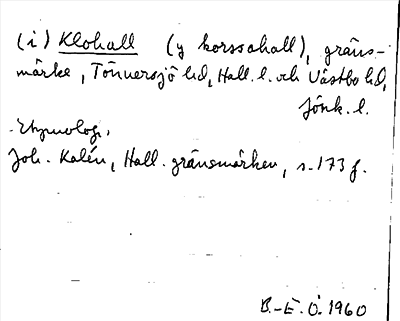 (i) Klohall (y korssahall), gräns-
märke, Tönnersjö hd, Hall. l. och Västbo hd,
Jönk. l.
Etymologi.
Joh. Kalén, Hall. gränsmärken, s. 173 f.
B.-E. Ö. 1960